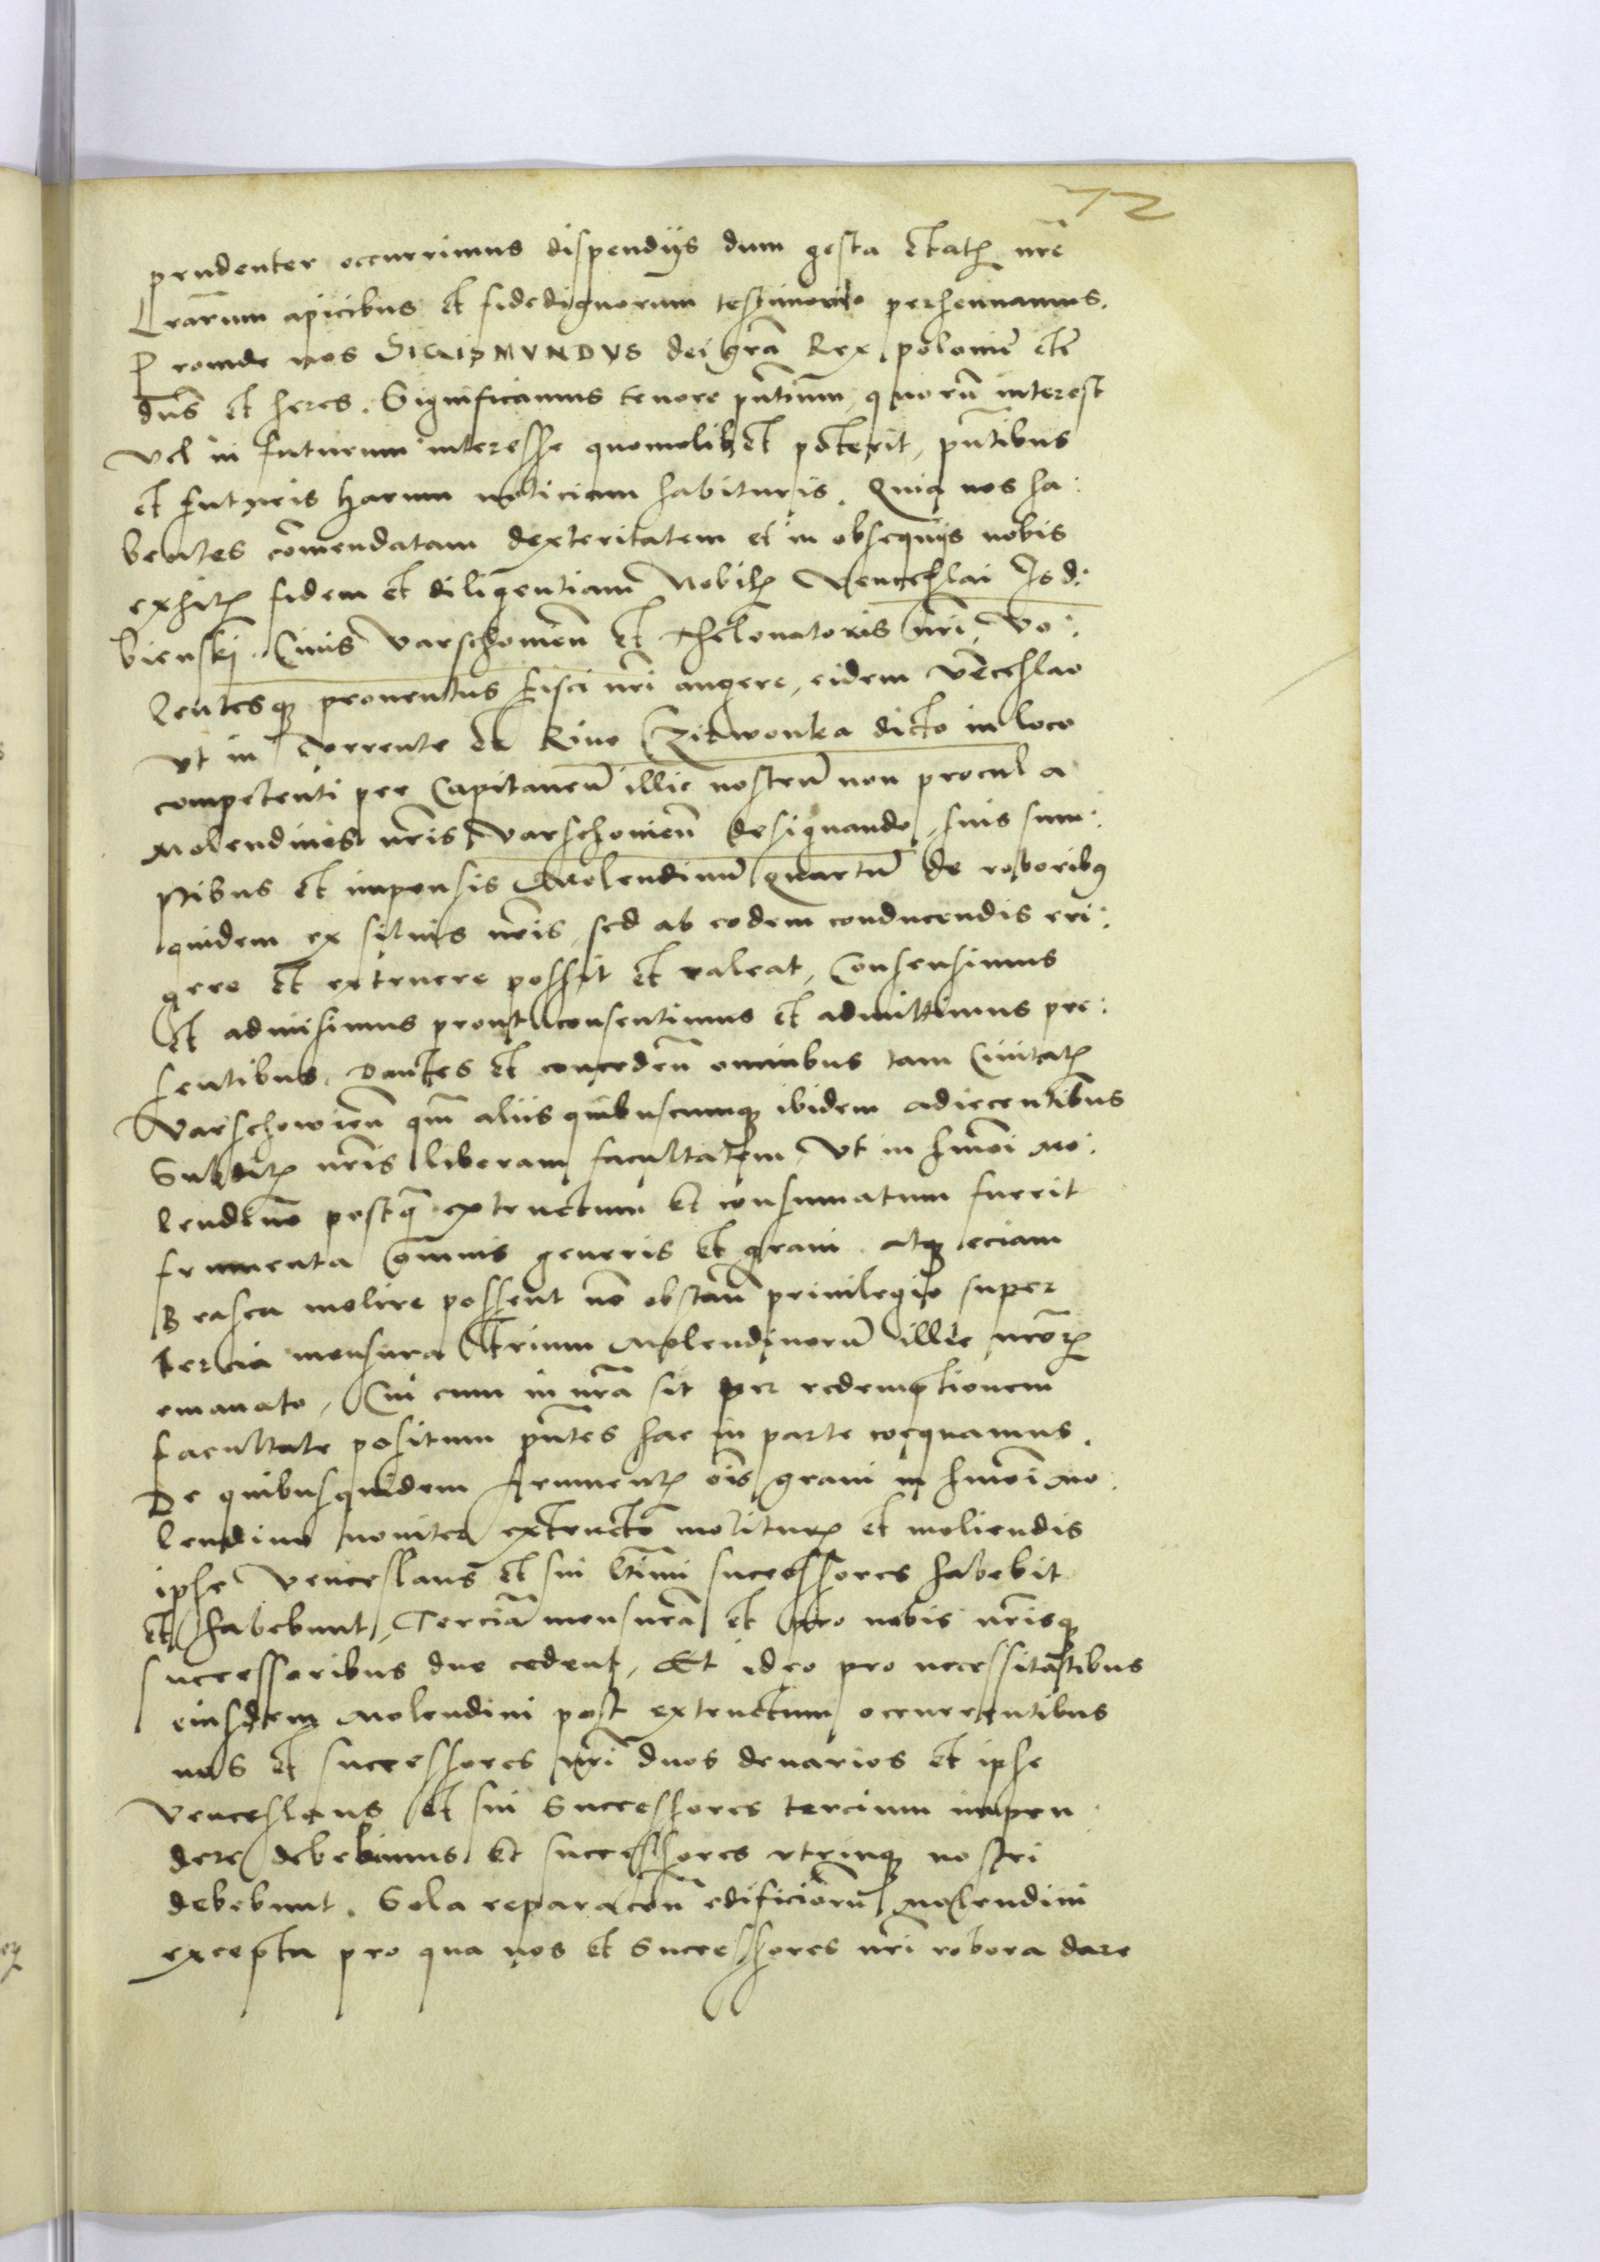 72
prudenter occurrimus dispendijs dum gesta etatꝭ nrẽ
Lrarum apicibus et fidedignorum testimonio perhennamus.
Proinde nos SIGISMVNDVS dei gr̃a Rex polonie etc̃
dñs et heres. Significamus tenore pñtium, quorũ interest
vel in futurum interesse quomolibet poterit, pñtibus
et futuris harum noticiam habituris. Quia nos ha:
bentes cõmendatam dexteritatem et in obsequijs nobis
exhitꝭ fidem et diligentiam Nobilꝭ Venceslai Isd:
bienskj Ciuis Varschouieñ et Theloneatoris nrĩ, Vo:
lentesqꝫ prouentus fisci nrĩ augere, eidem Venceslao
vt in torrente et Riuo dicto in loco
competenti per Capitaneũ illic nostrũ non procul a
Molendinis nrĩs Varschouieñ designando, suis sum:
ptibus et impensis Molendinũ quartũ de roboribꝰ
quidem ex siluis nrĩs, sed ab eodem conducendis eri:
gere et extruere possit et valeat, Consensimus
et admisimus prout consentimus et admittimus pre:
sentibus. Dantes et conceden̄ omnibus tam Ciuitatꝭ
Varschowieñ qm̃ aliis quibuscumqꝫ ibidem adiacentibus
Subditꝭ nrĩs liberam facultatem, Vt in hmõi Mo:
lendino postq̃ extructum et consumatum fuerit
frumenta omnis generis et grani atqꝫ eciam
Brasea molire possent nõ obstañ priuilegio super
tercia mensura trium Molendinorũ illic
emanato, Cui cum in nrã sit per redemptionem
facultate positum pñtes hac in parte coequamus.
De quibusquidem frumentꝭ oĩs grani in hmõi Mo:
lendino nouiter extructo moliturꝭ et moliendis
ipse Venceslaus et sui ltĩmi successores habebit
et habebunt, Terciã mensurã et pro nobis nrĩsqꝫ
successoribus due cedent, Et ideo pro necessitatibus
eiusdem Molendini post extructum occurrentibus
nos et successores nrĩ duos denarios et ipse
Venceslaus et sui Successores tercium impen
dere debebimus et successores vtrinqꝫ nostri
debebunt. Sola reparacõñ edificiorũ Molendini
excepta pro qua nos et Successores nrĩ robora dare